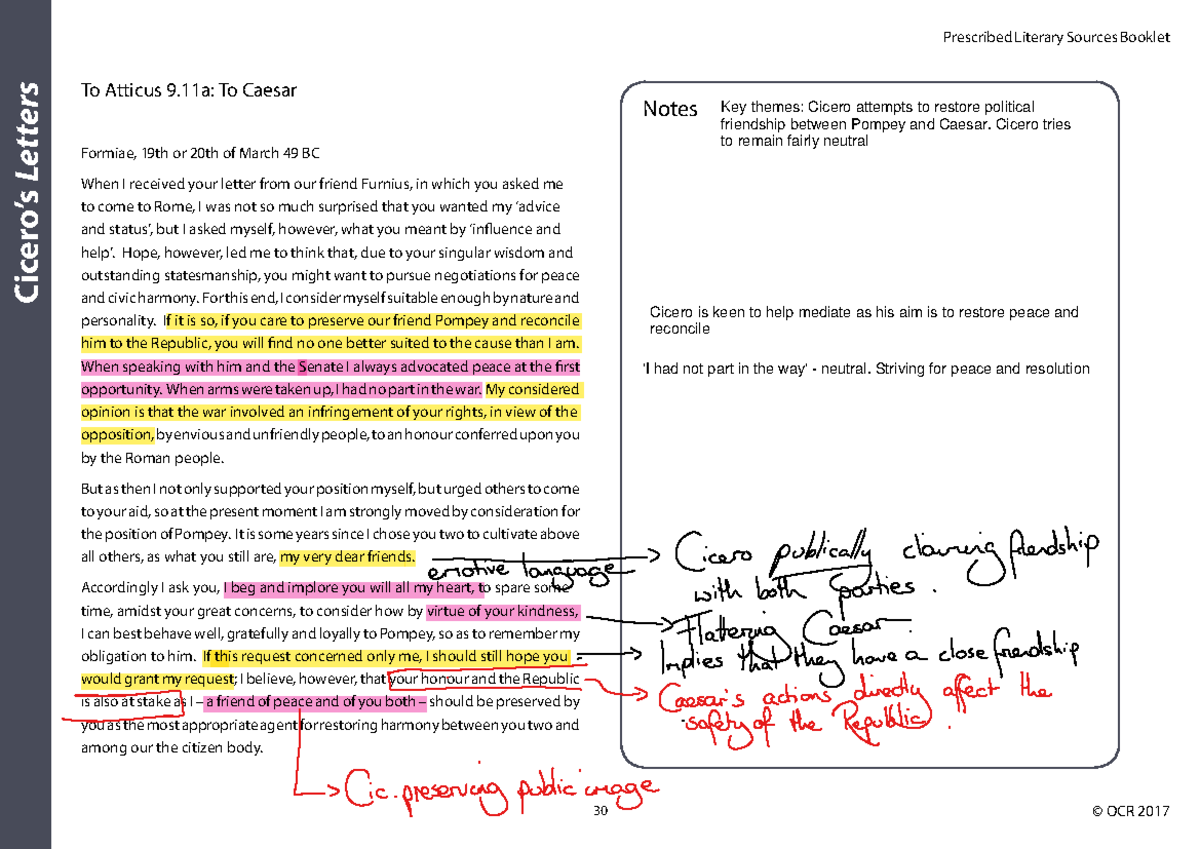 Prescribed Literary Sources Booklet
Cicero's Letters
To Atticus 9.11a: To Caesar
Formiae, 19th or 20th of March 49 BC
When I received your letter from our friend Furnius, in which you asked me
to come to Rome, I was not so much surprised that you wanted my 'advice
and status', but I asked myself, however, what you meant by 'influence and
help'. Hope, however, led me to think that, due to your singular wisdom and
outstanding statesmanship, you might want to pursue negotiations for peace
and civic harmony. For this end, I consider myself suitable enough by nature and
personality. If it is so, if you care to preserve our friend Pompey and reconcile
him to the Republic, you will find no one better suited to the cause than I am.
When speaking with him and the Senate I always advocated peace at the first
opportunity. When arms were taken up, I had no part in the war. My considered
opinion is that the war involved an infringement of your rights, in view of the
opposition, by envious and unfriendly people, to an honour conferred upon you
by the Roman people.
But as then I not only supported your position myself, but urged others to come
to your aid, so at the present moment I am strongly moved by consideration for
the position of Pompey. It is some years since I chose you two to cultivate above
all others, as what you still are, my very dear friends.
Accordingly I ask you, I beg and implore you will all my heart, to spare some
time, amidst your great concerns, to consider how by virtue of your kindness,
I can best behave well, gratefully and loyally to Pompey, so as to remember my
obligation to him. If this request concerned only me, I should still hope you
would grant my request; I believe, however, that your honour and the Republic
is also at stake as I – a friend of peace and of you both – should be preserved by
you as the most appropriate agent for restoring harmony between you two and
among our the citizen body.
Notes
Key themes: Cicero attempts to restore political
friendship between Pompey and Caesar. Cicero tries
to remain fairly neutral
Cicero is keen to help mediate as his aim is to restore peace and
reconcile
'I had not part in the way' - neutral. Striving for peace and resolution
emotive language
Cicero publically claiming friendship
with both parties.
Flattering Caesar.
Implies that they have a close friendship
Caesar's actions directly affect the
safety of the Republic.
Cic. preserving public image
30
© OCR 2017